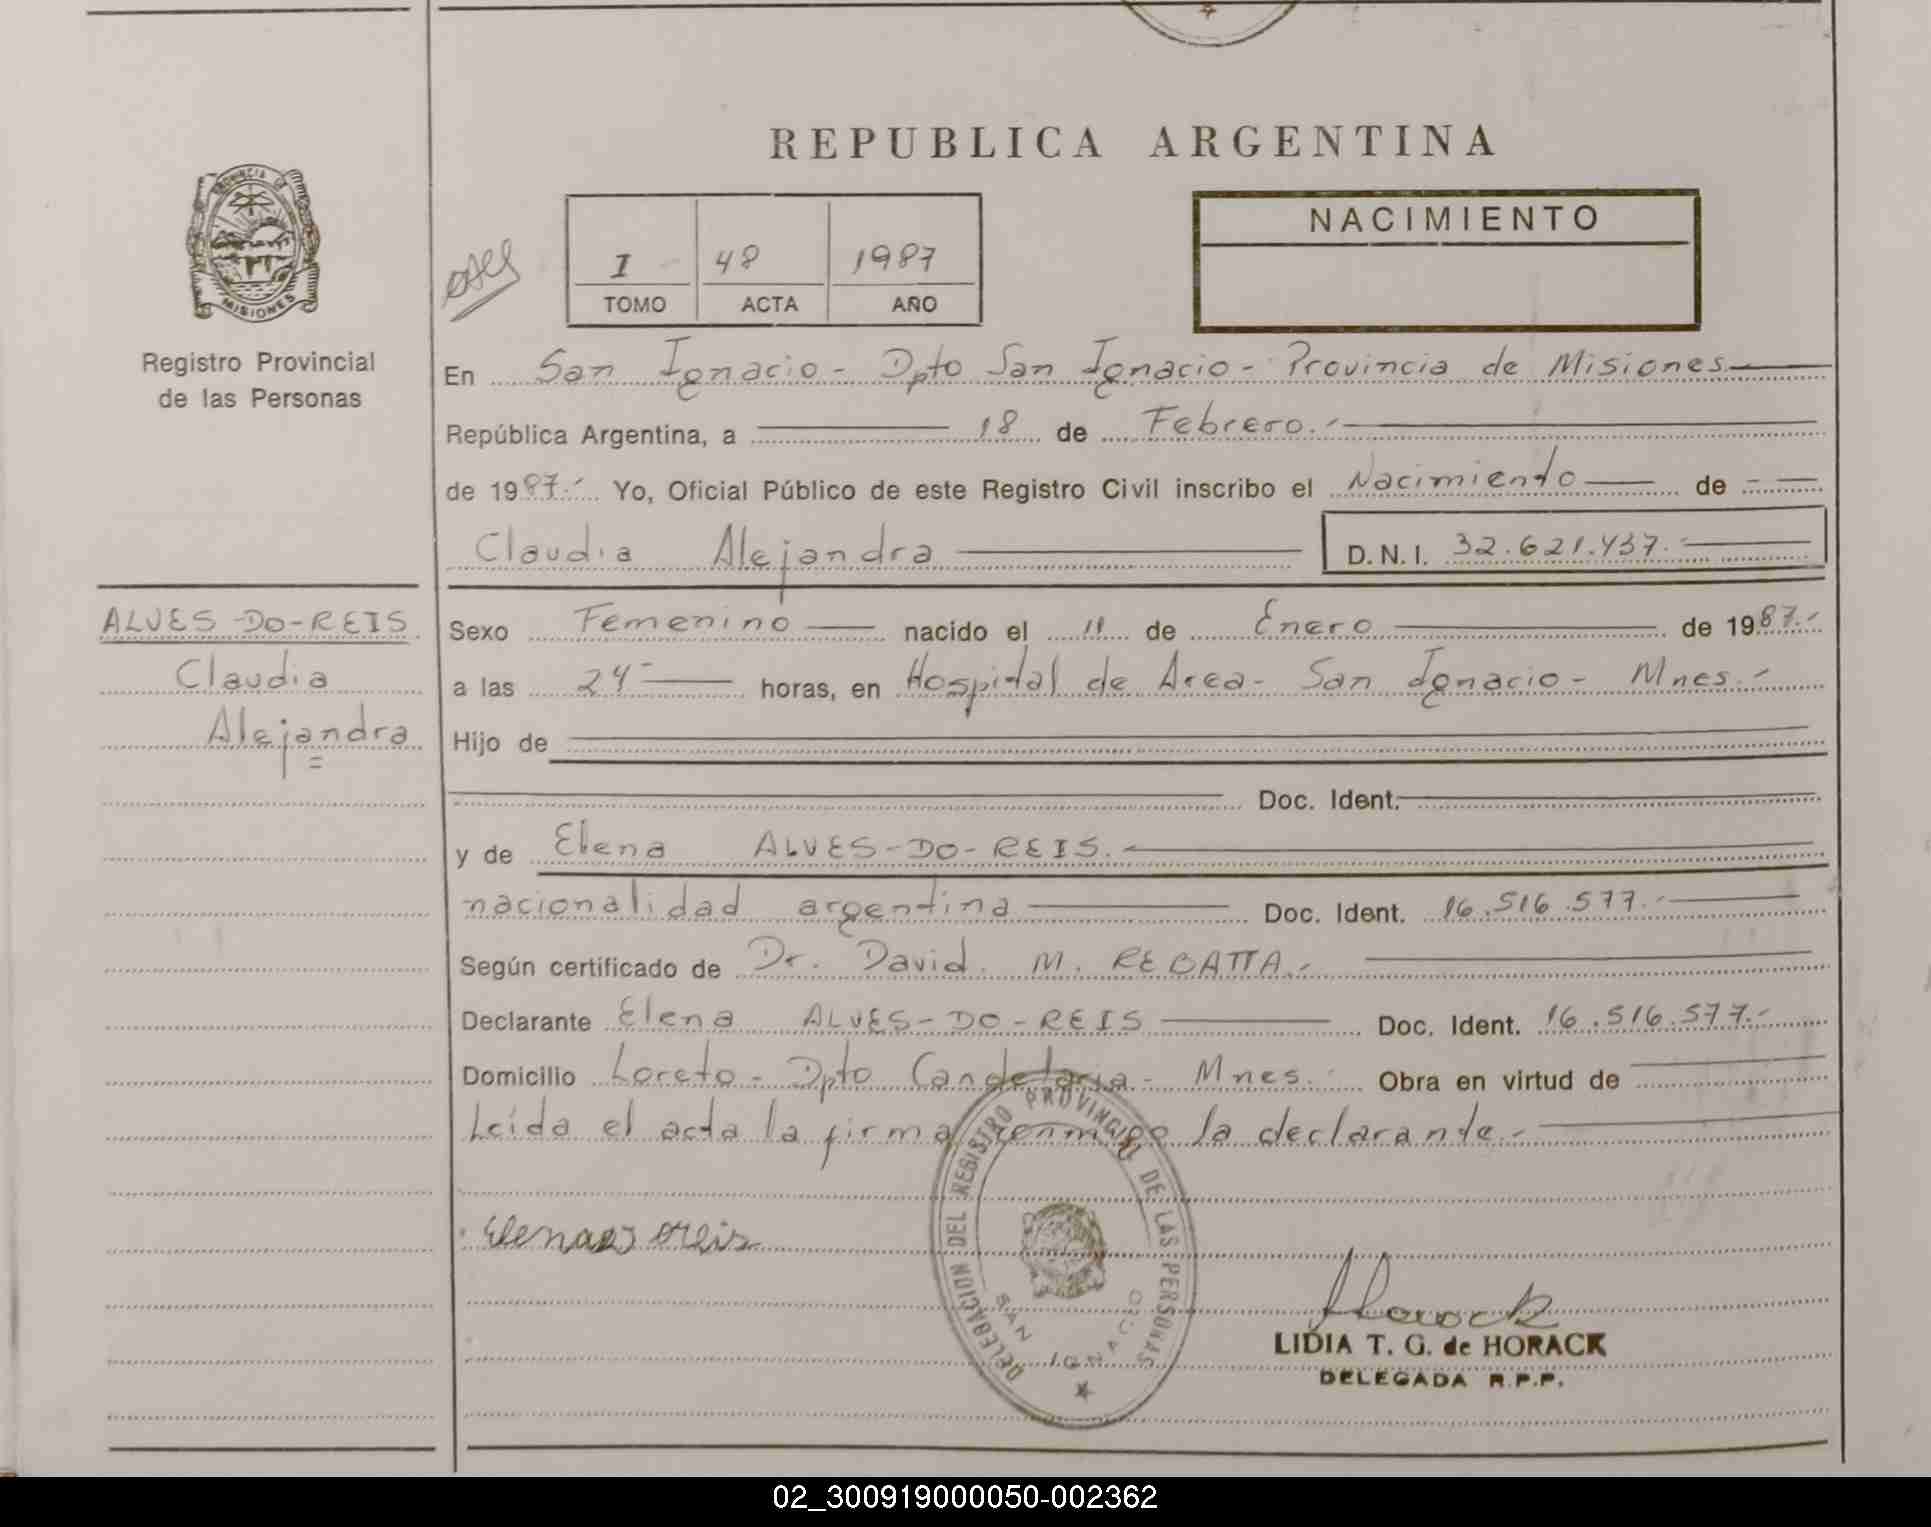 REPUBLICA ARGENTINA
PROVINCIA DE
MISIONES
Registro Provincial
de las Personas
I 48 1987
TOMO ACTA AÑO
NACIMIENTO
En San Ignacio - Dpto San Ignacio - Provincia de Misiones
República Argentina, a 18 de Febrero.-
de 1987.- Yo, Oficial Público de este Registro Civil inscribo el Nacimiento de
Claudia Alejandra D.N.I. 32.621.437.-
ALVES-DO-REIS
Claudia
Alejandra
Sexo Femenino nacido el 11 de Enero de 1987.-
a las 24- horas, en Hospital de Area - San Ignacio - Mnes.-
Hijo de
Doc. Ident.
y de Elena ALVES-DO-REIS.-
nacionalidad argentina Doc. Ident. 16.516.577.-
Según certificado de Dr. David M. REBATTA.-
Declarante Elena ALVES-DO-REIS Doc. Ident. 16.516.577.-
Domicilio Loreto - Dpto Candelaria - Mnes. Obra en virtud de
Leída el acta la firma conmigo la declarante.-
DELEGACION DEL REGISTRO PROVINCIAL DE LAS PERSONAS
SAN IGNACIO
Horack
LIDIA T. G. de HORACK
DELEGADA R.P.P.
02_300919000050-002362